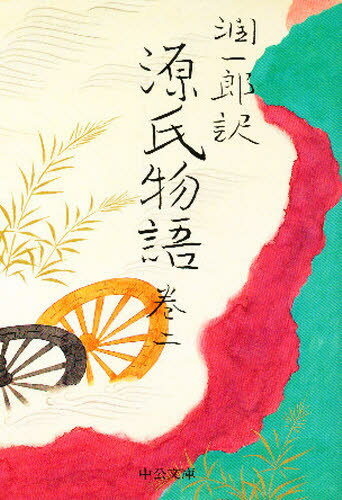 潤一郎訳
源氏物語
巻二
中公文庫